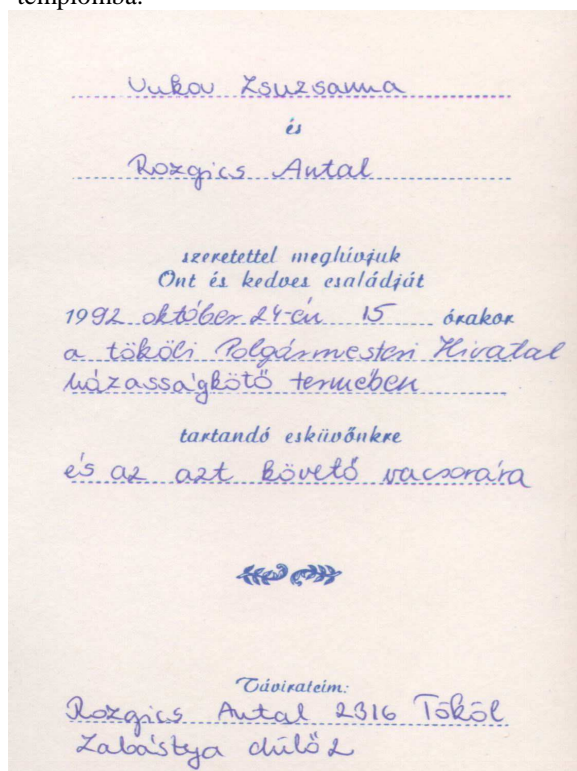 templomba.
Vukov Zsuzsanna
és
Rozgics Antal
szeretettel meghívjuk
Önt és kedves családját
1992 október 24-én 15 órakor
a tököli Polgármesteri Hivatal
házasságkötő termében
tartandó esküvőnkre
és az azt követő vacsorára
Távirateím:
Rozgics Antal 2316 Tököl
Zabástya dűlő 2